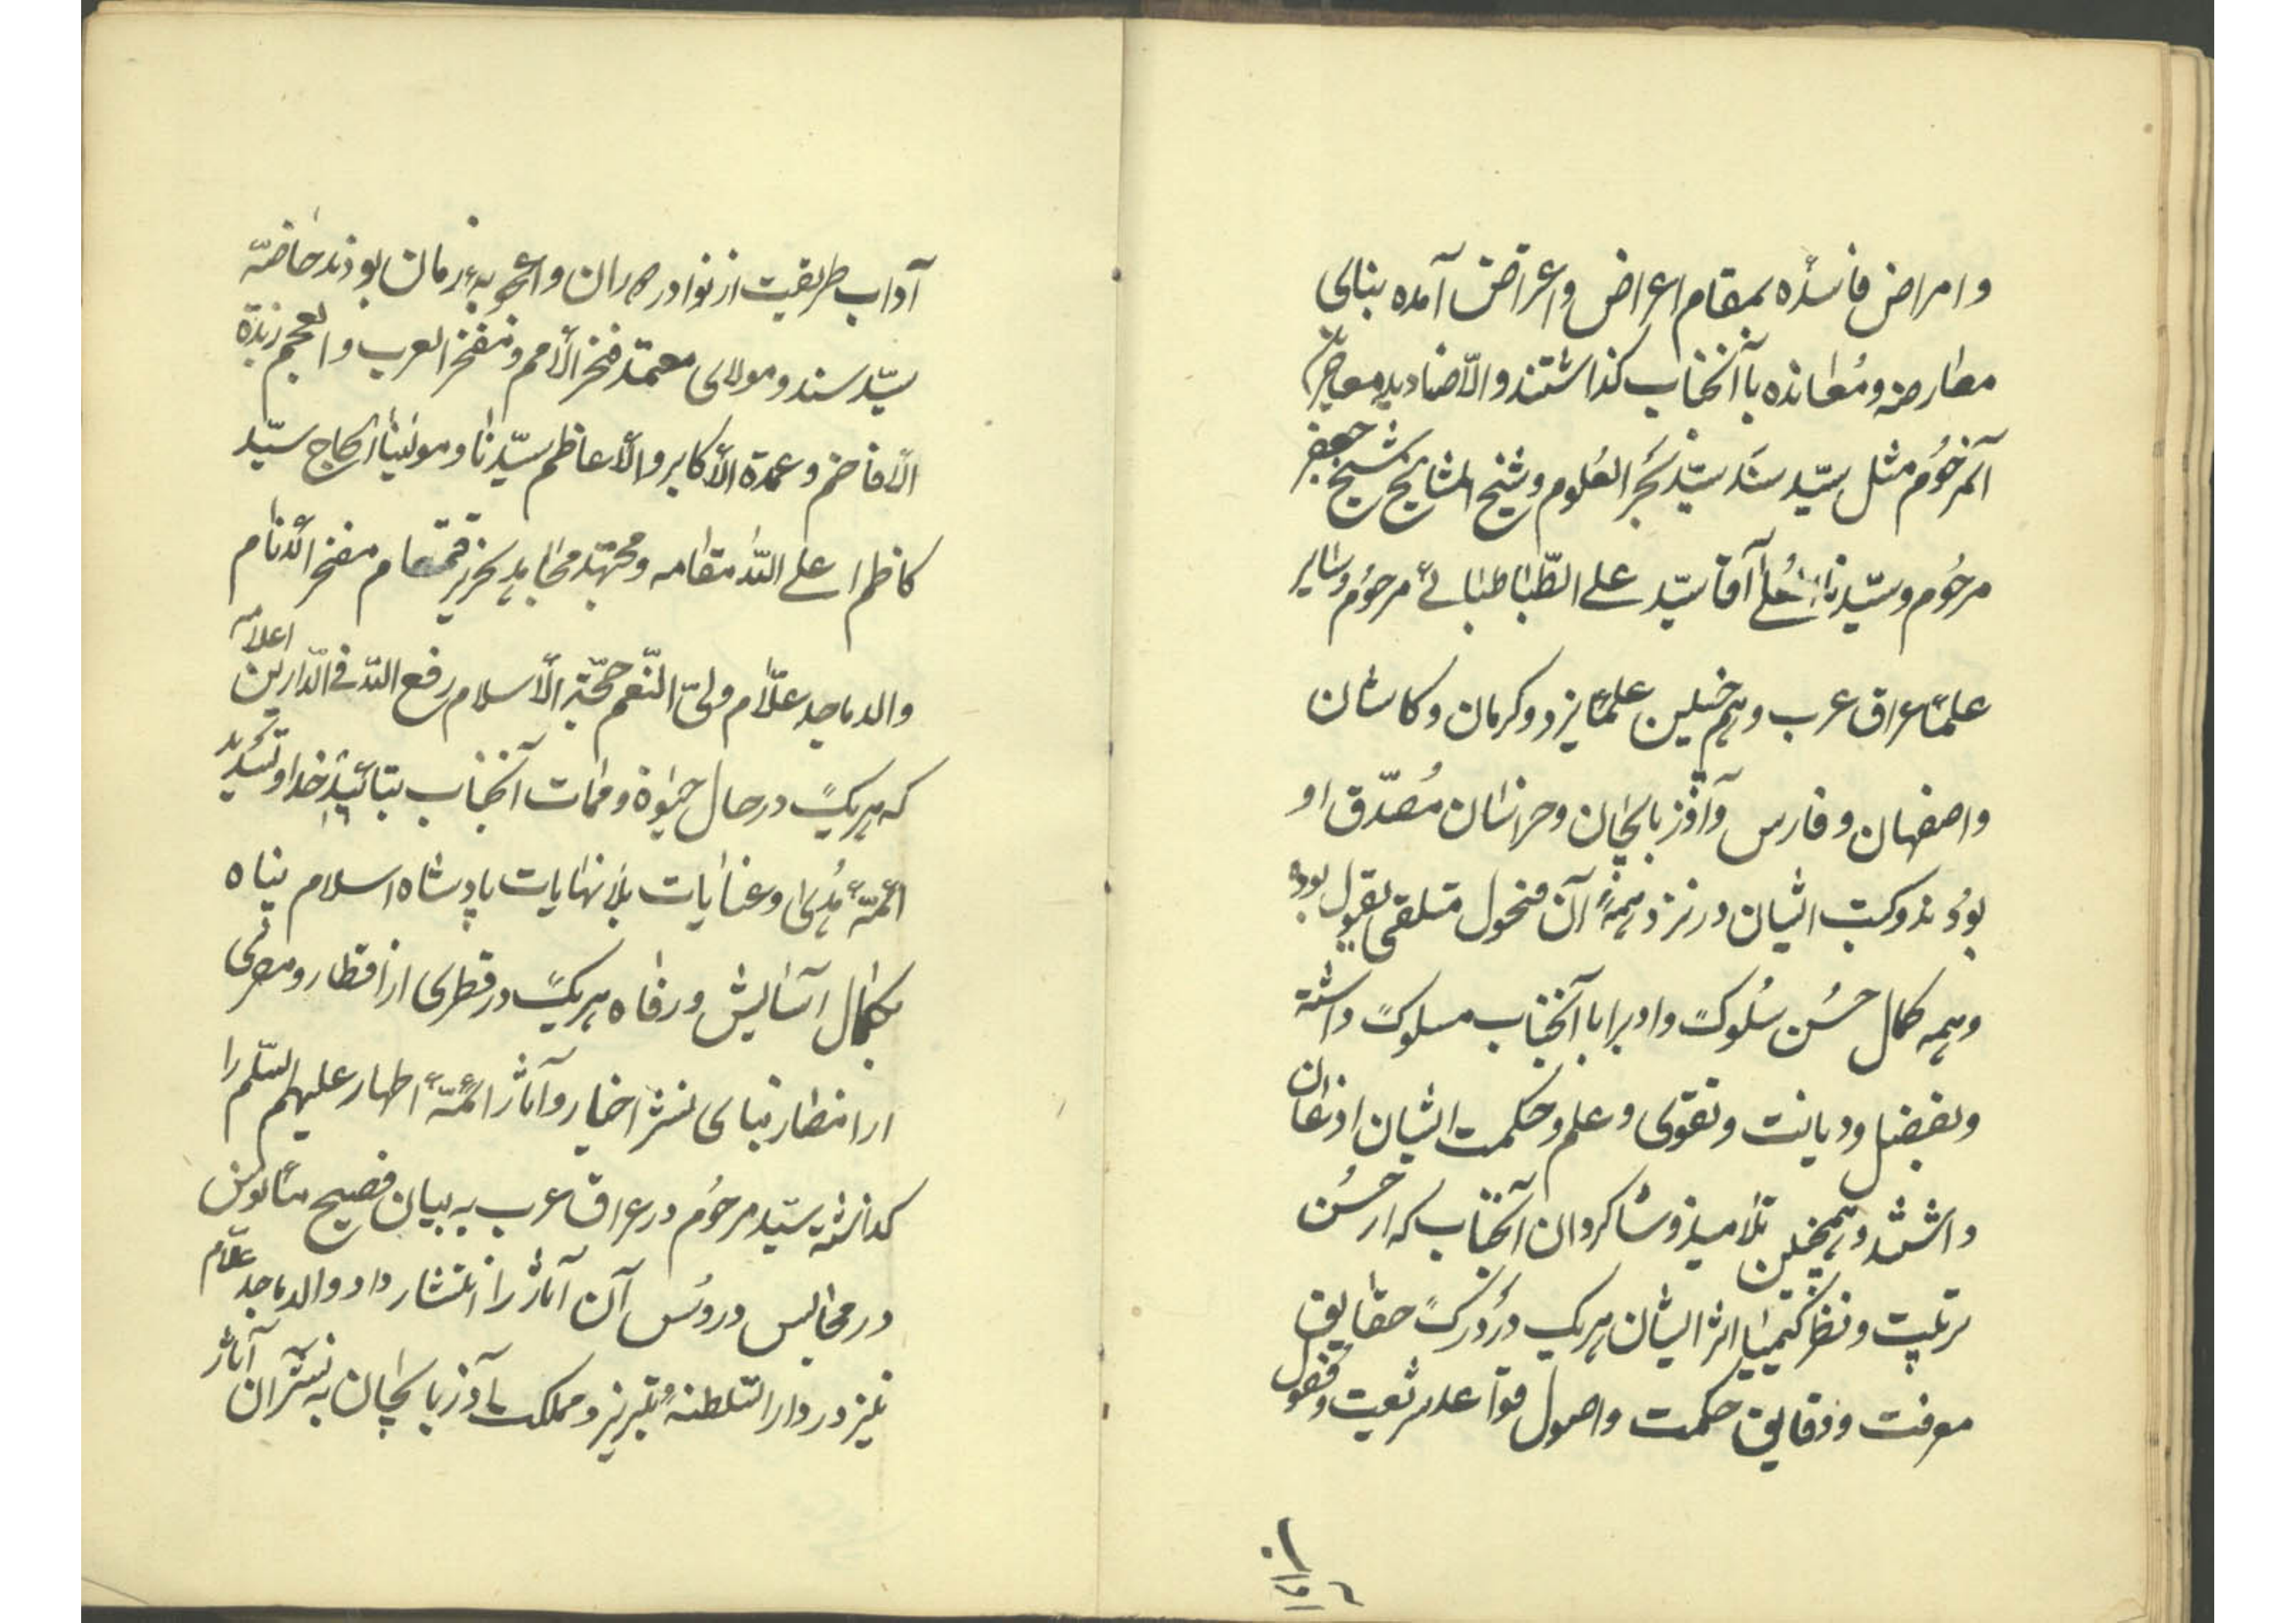 و امراض فاسده بمقام اعراض و اعراض آمده بنای
معارضه و معانده با آنجناب کذاشتند و الّا صنادید معاصر
آنمرحُوم مثل سیّد سَنَد سیّد بَحر العُلوم و شیخ المشایخ شیخ جعفر
مرحُوم و سیّدنا الاَجل آقا سیّد علی الطّباطبائی مرحُوم و سایر
علماء عراق عرب و هم چنین علماء یزد و کرمان و کاشان
و اصفهان و فارس و آذربایجان و خراسان مُصدّق او
بودند و کتب ایشان در نزد همهٔ آن فحول متلقی بقبول بوده
و همه کمال حسُن سُلوک و ادب را با آنجناب مسلوک داشته
و بفضل و دیانت و تقوی و علم و حکمت ایشان اذعان
داشتند و همچنین تلامیذ و شاکردان آنجناب که از حسُن
تربیت و نظر کیمیا اثر ایشان هریک در درک حقایق
معرفت و دقایق حکمت و اصول قواعد شریعت و فصول
آداب طریقت از نوادر دوران و اعجوبهٔ زمان بودند خاصّه
سیّد سند و مولای معتمد فخر الأمم و مفخر العرب و العجم زبدة
الأفاخم و عمدة الأکابر و الأعاظم سیّدنا و مولینا الحاج سیّد
کاظم اعلی اللّه مقامه و مجتهد مجاهد نحریر قمقام مفخر الأنام
والد ماجد علّام ولیّ النّعم حجّة الأسلام رفع اللّه فی الدّارین اعلامه
که هریک در حال حیٰوة و ممات آنجناب بتائید خدا و تسدید
ائمّهٔ هُدی و عنایات بلا نهایات پادشاه اسلام پناه
بکمال آسایش و رفاه هریک در قطری از اقطار و مصری
از امصار بنای نشر اخبار و آثار ائمّهٔ اطهار علیهم السّلم را
کذاشته سیّد مرحُوم در عراق عرب به بیان فصیح مأنوس
در مجالس دروُس آن آثار را انتشار داد و والد ماجد علّام
نیز در دار السّلطنهٔ تبریز و مملکت آذربایجان به نشر آن آثار